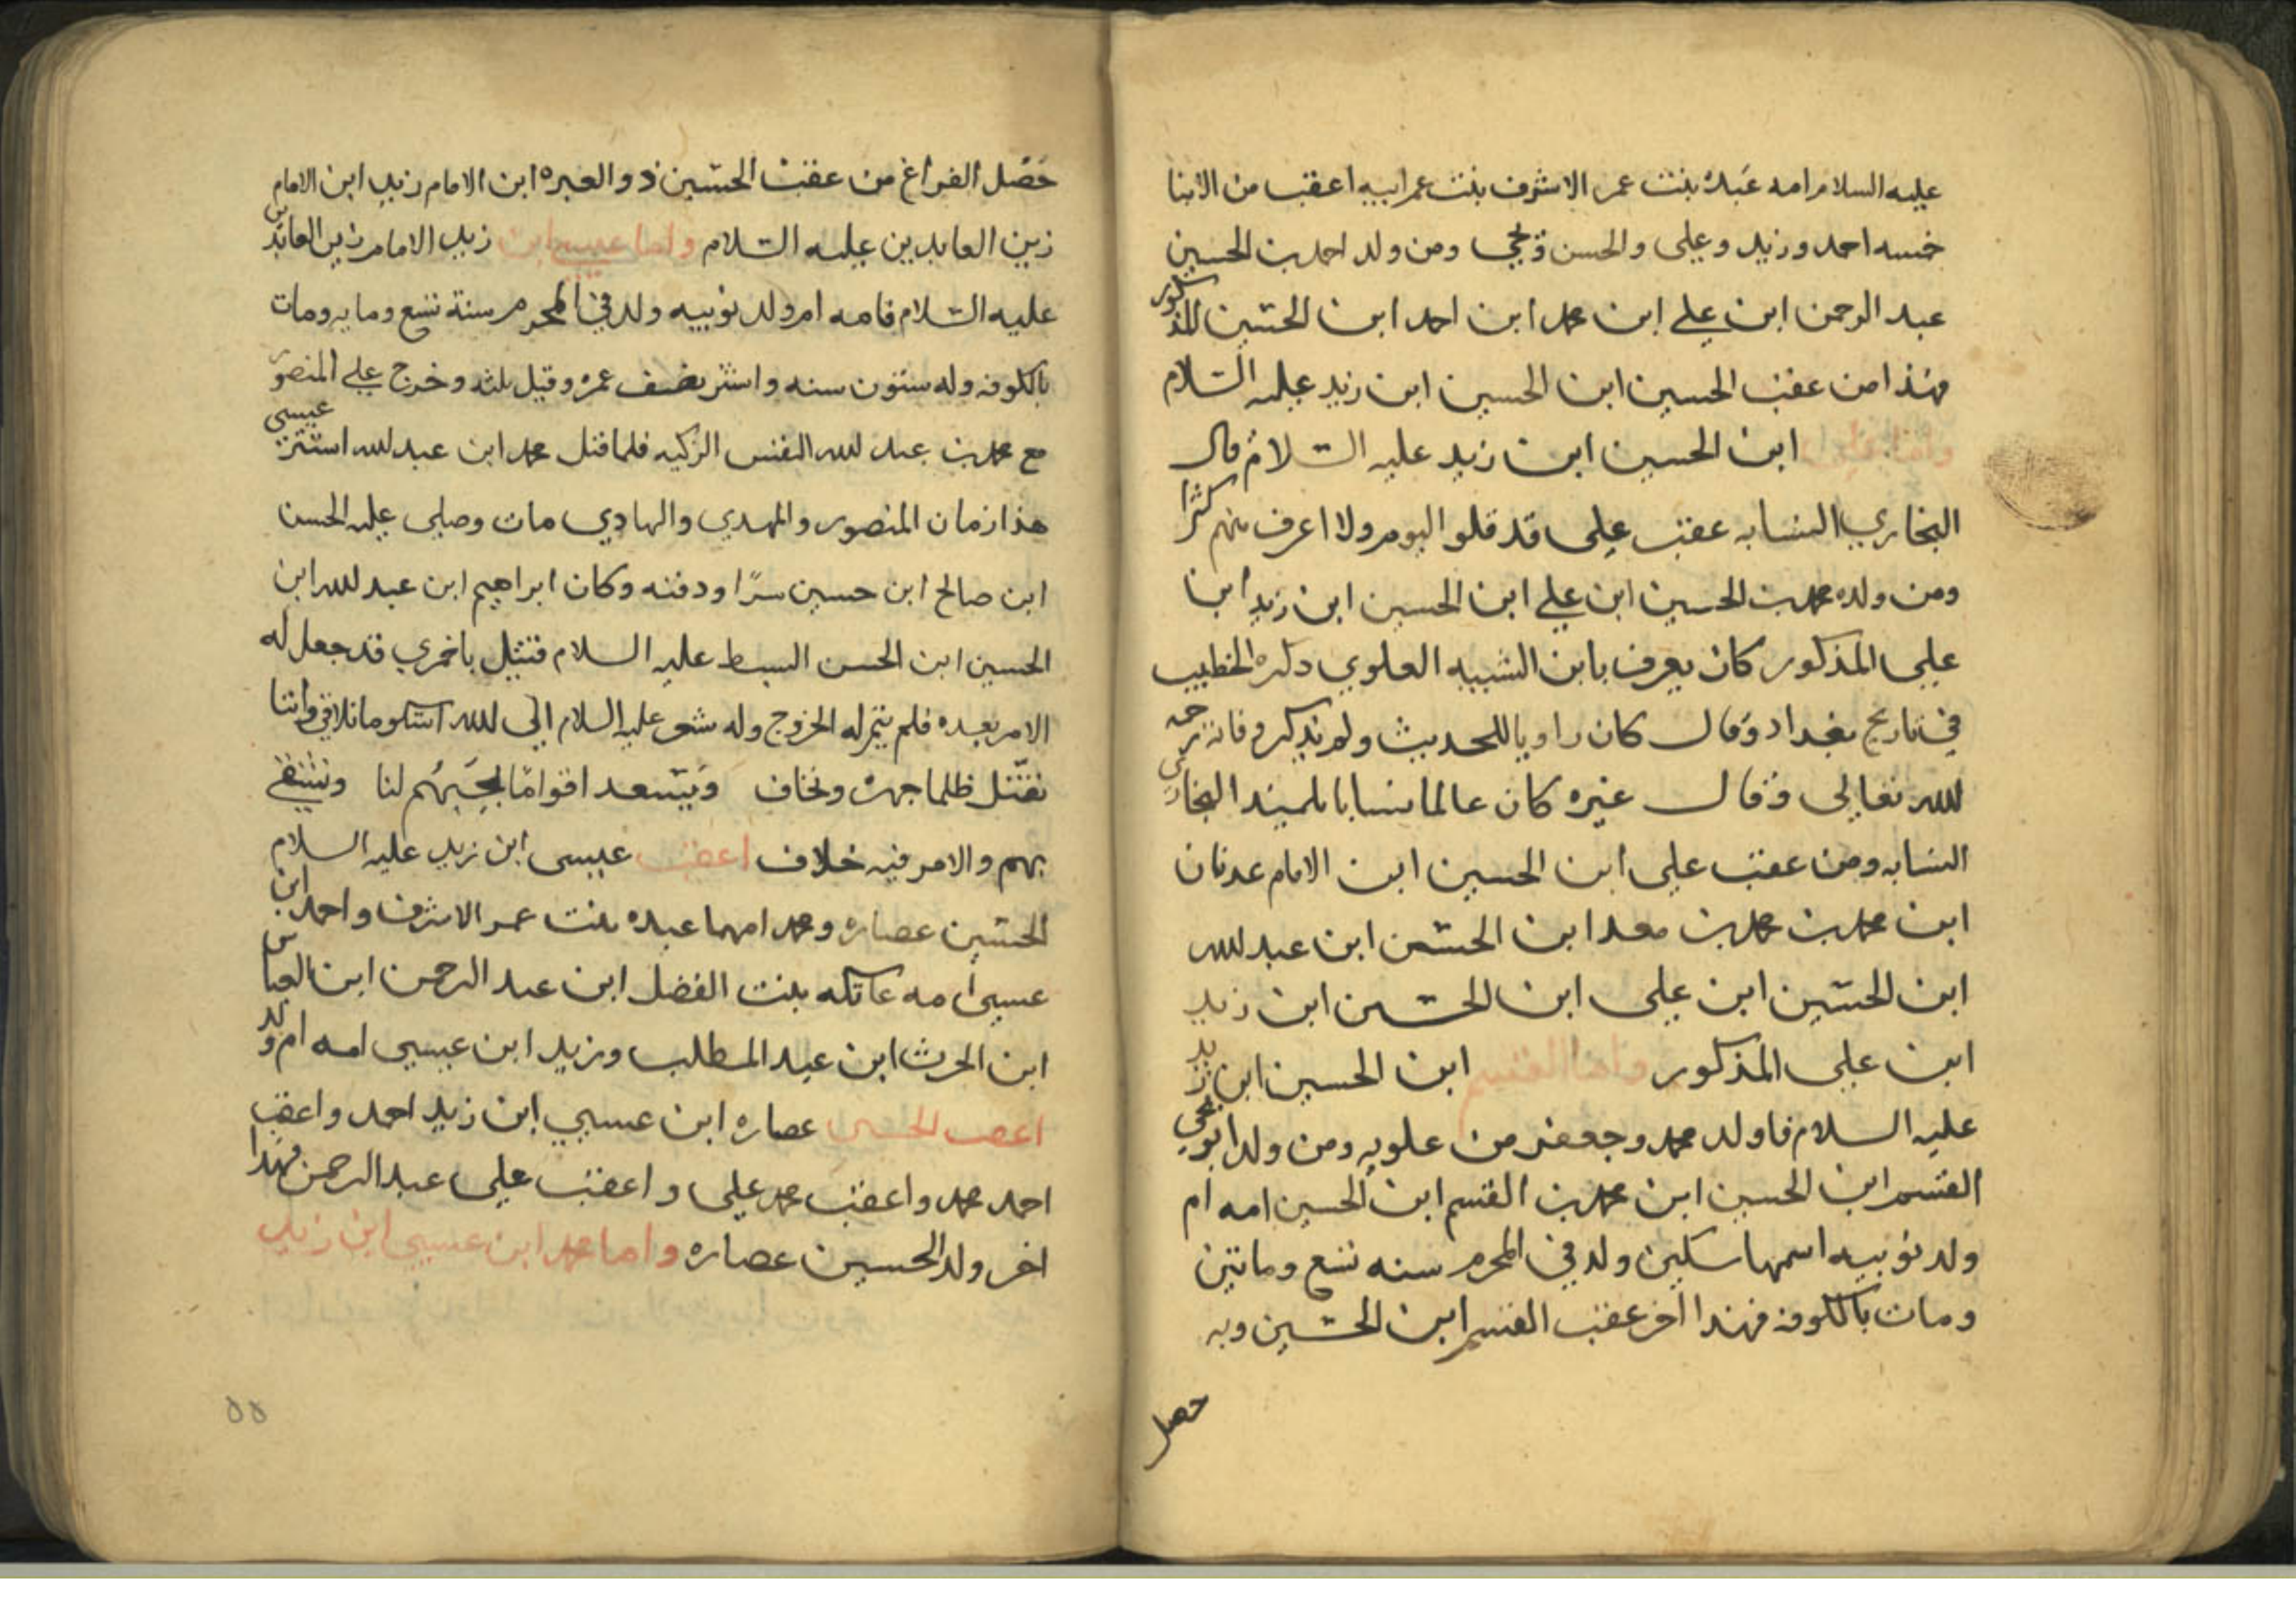 عليه السلام امه عبدة بنت عمر الاشرف بنت عم ابيه اعقب من الابنا
خمسه احمد وزيد وعلى والحسن ويحي ومن ولد احمد بن الحسين
عبد الرحمن ابن علي ابن محمد ابن احمد ابن الحسين المذكور
فهذا من عقب الحسين ابن الحسين ابن زيد عليه السلام
ابن الحسين ابن زيد عليه السلام قال
البخاري النسابه عقب على قد قلوا اليوم ولا اعرف منهم كثرا
ومن ولده محمد بن الحسين ابن علي ابن الحسين ابن زيد ابنا
علي المذكور كان يعرف بابن الشبيه العلوي ذكره الخطيب
في تاريخ بغداد وقال كان راويا للحديث ولم يذكر وفاته رحمه
الله تعالى وقال غيره كان عالما نسابا تلميذ البخاري
النسابه ومن عقب علي ابن الحسين ابن الامام عدنان
ابن محمد بن محمد بن معد ابن الحسين ابن عبد الله
ابن الحسين ابن علي ابن الحسين ابن زيد
ابن علي المذكور واما القسم ابن الحسين ابن زيد
عليه السلام فاولد محمد وجعفر من علويه ومن ولد ابو يحي
القسم ابن الحسين ابن محمد بن القسم ابن الحسين امه ام
ولد نوبيه اسمها سكين ولد في المحرم سنه تسع وماتين
ومات بالكوفه فهذا اخر عقب القسم ابن الحسين وبه
حصل
حصل الفراغ من عقب الحسين ذو العبره ابن الامام زيد ابن الامام
زين العابدين عليه السلام واما عيسى ابن زيد الامام زين العابدين
عليه السلام فامه ام ولد نوبيه ولد في المحرم سنة تسع ومايه ومات
بالكوفه وله ستون سنه واستتر نصف عمره وقيل ثلثه وخرج علي المنصور
مع محمد بن عبد الله النفس الزكيه فلما قتل محمد ابن عبد الله استتر عيسى
هذا زمان المنصور والمهدي والهادي مات وصلى عليه الحسن
ابن صالح ابن حسين سرا ودفنه وكان ابراهيم ابن عبد الله ابن
الحسين ابن الحسن السبط عليه السلام قتيل باخمري قد جعل له
الامر بعده فلم يتم له الخروج وله شعر عليه السلام الى الله اشكو ما نلاقي واننا
نقتل ظلما جهرة ونخاف ويسعد اقواما بحبهم لنا ونشقى
بهم والامر فيه خلاف اعقب عيسى ابن زيد عليه السلام
الحسين عصاره ومحمد امهما عبده بنت عمر الاشرف واحمد ابن
عسيى امه عاتكه بنت الفضل ابن عبد الرحمن ابن العباس
ابن الحرث ابن عبد المطلب وزيد ابن عيسى امه ام ولد
اعقب الحسين عصاره ابن عيسي ابن زيد احمد واعقب
احمد محمد واعقب محمد علي واعقب علي عبد الرحمن فهذا
اخر ولد الحسين عصاره واما محمد ابن عيسى ابن زيد
٥٥